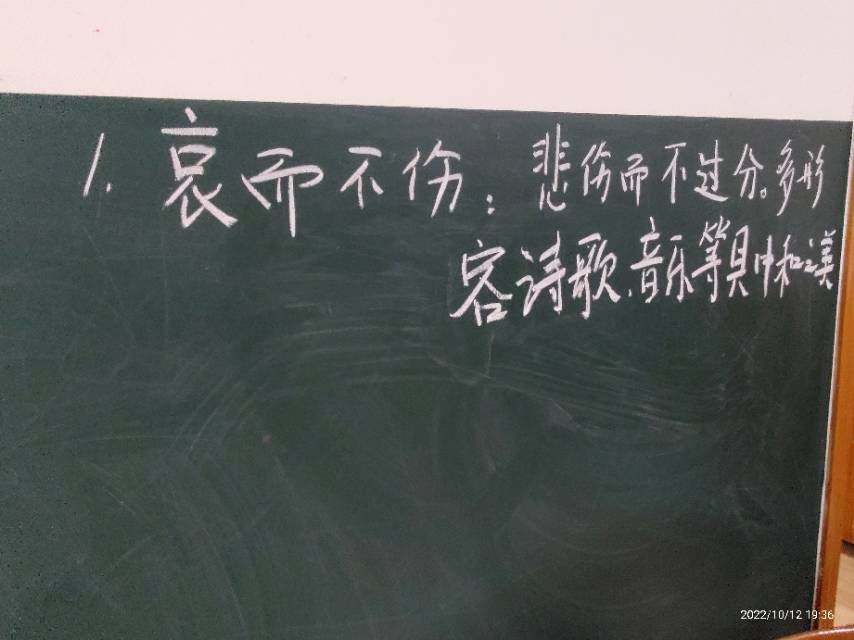 1. 哀而不伤：悲伤而不过分。多形
容诗歌、音乐等具中和之美
2022/10/12 19:36